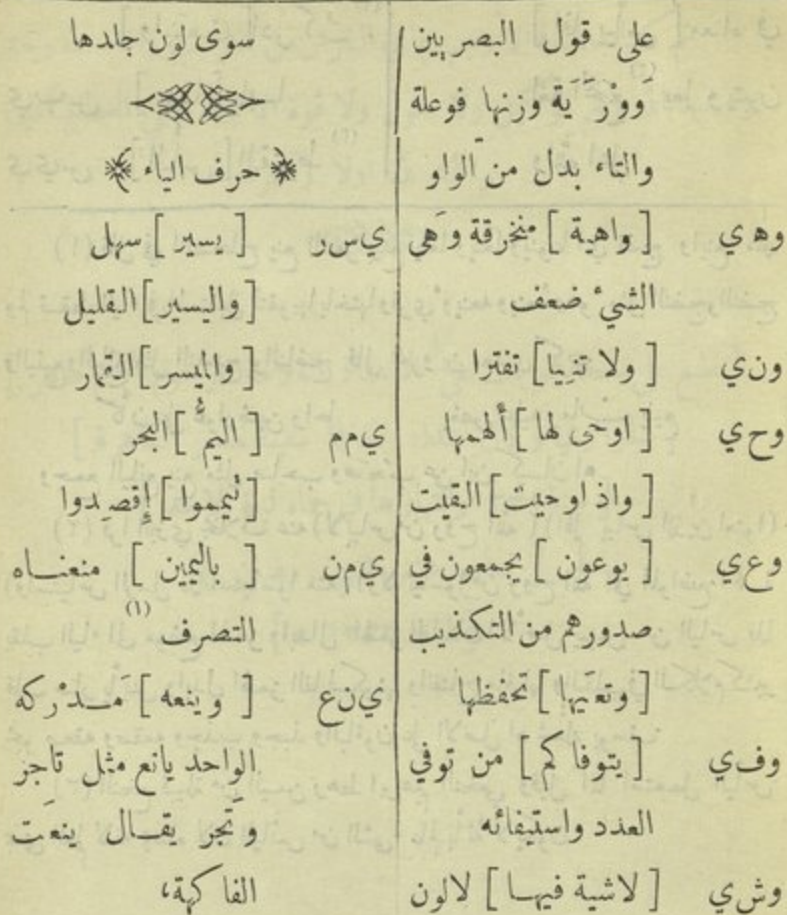 على قول البصريين
وَوْرَيَة وزنها فوعلة
والتاء بدل من الواو
وهي [ واهية ] منخرقة وَهى
الشيء ضعف
وني [ ولا تنِيا ] تفترا
وحي [ اوحى لها ] ألهمها
[ واذ اوحيت ] القيت
وعي [ يوعون ] يجمعون في
صدورهم من التكذيب
[ وتعيَها ] تحفظها
وفي [ يتوفاكم ] من توفي
العدد واستيفائه
وشي [ لاشية فيهـا ] لالون
سوى لون جلدها
❋ حرف الياء ❋
يسر [ يسير ] سهل
[ واليسير ] القليل
[ والميسر ] القمار
يمم [ اليمُّ ] البحر
[ تيمموا ] إقصِدوا
يمن [ باليمين ] منعنـاه
التصرف (١)
ينع [ وينعه ] مَـدْركه
الواحد يانع مثل تاجر
وتَجر يقـال ينعَت
الفاكهة،